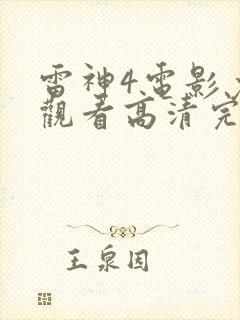 雷神4电影
觀看高清完
王泉因